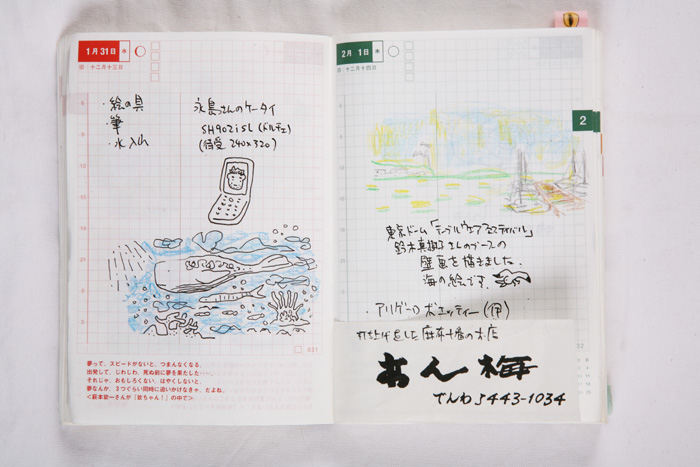 1月31日 水
旧:十二月十三日
・絵の具
・筆
・水入れ
永島さんのケータイ
SH902iSL (ドルチェ)
(待受 240×320)
031
夢って、スピードがないと、つまんなくなる。
出発して、じわじわ、死ぬ前に夢を果たした……。
それじゃ、おもしろくない。はやくしないと。
夢なんか、3つぐらい同時に追いかけなきゃ、だよね。
<萩本欽一さんが「欽ちゃん!」の中で>
2月 1日 木
旧:十二月十四日
2
東京ドーム「テーブルウェアフェスティバル」
鈴木真樹子さんのブースの
壁画を描きました。
海の絵です。
・アリゲーロ ボエッティー(伊)
麻布十番の本店
あん梅
でんわ 5443-1034